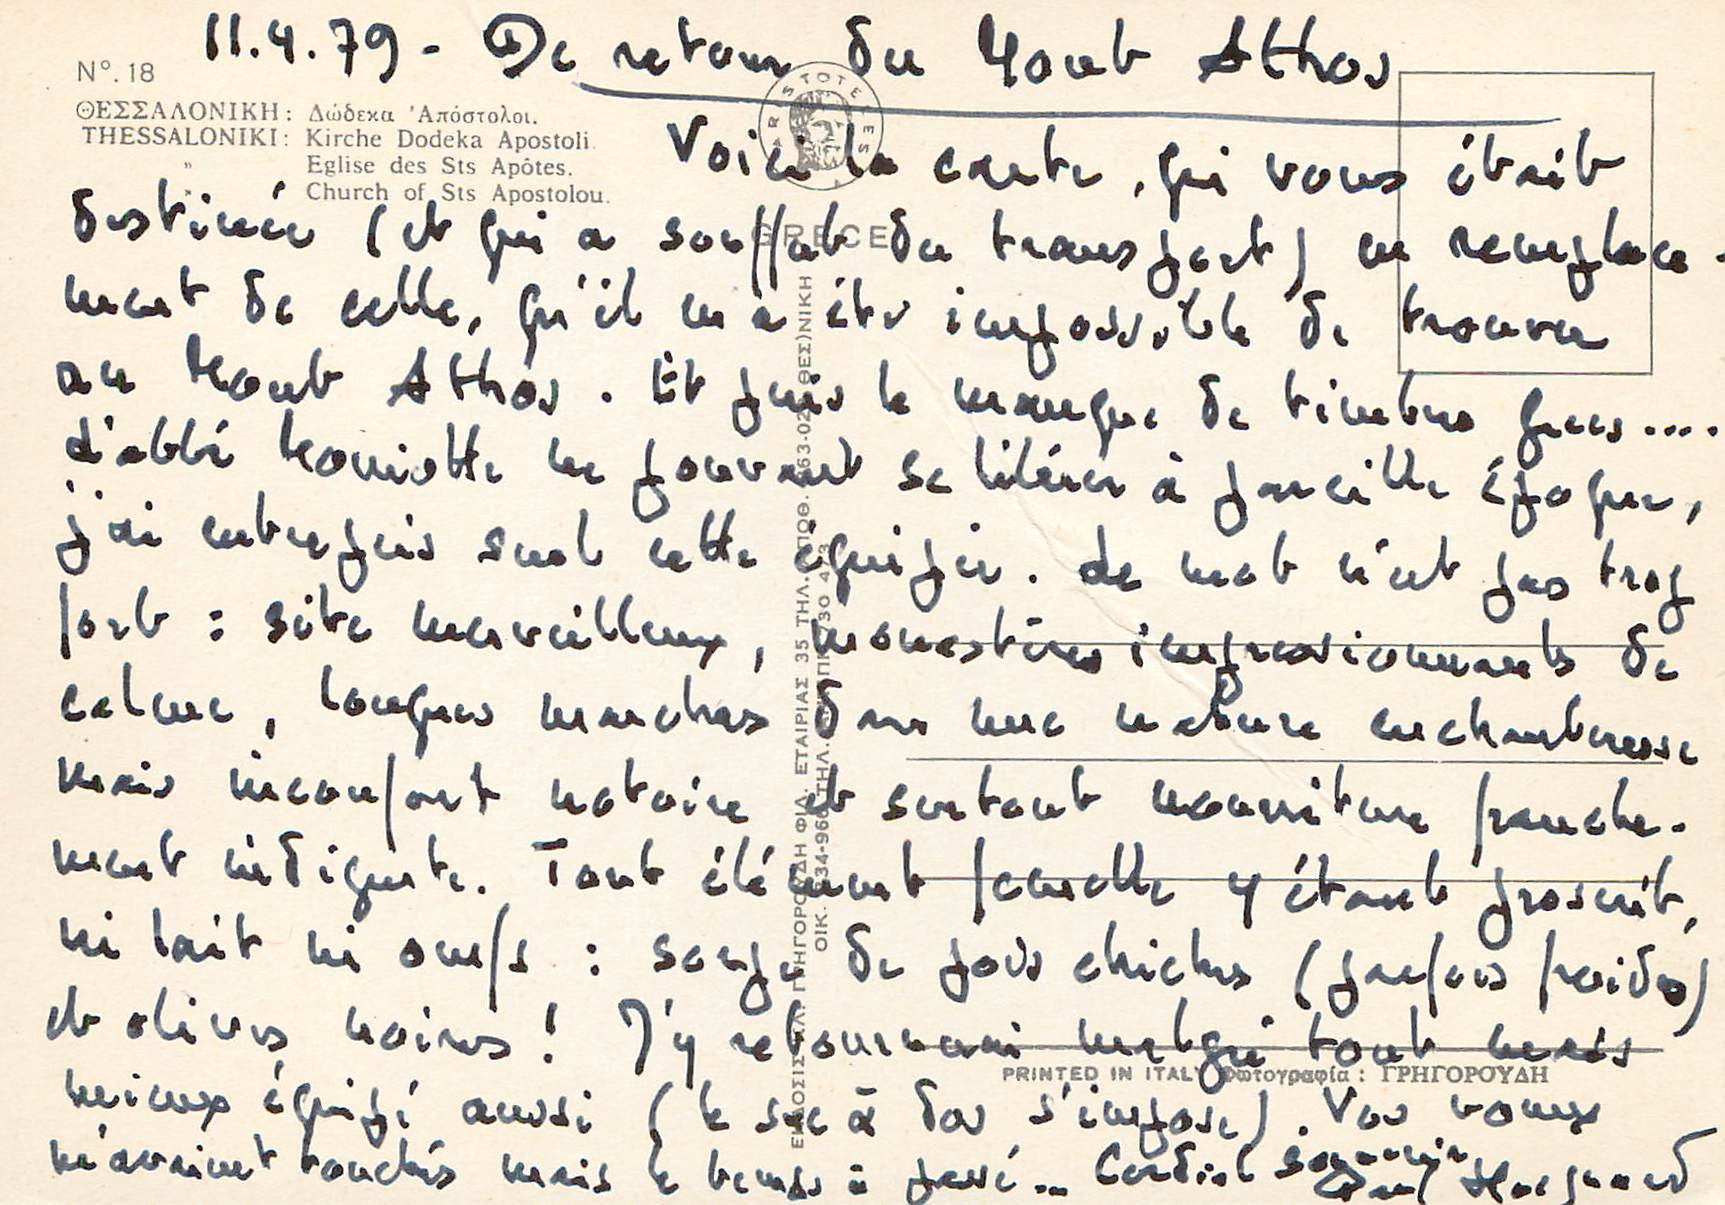 11.4.79 - De retour du Mont Athos
N°. 18
ΘΕΣΣΑΛΟΝΙΚΗ: Δώδεκα 'Απόστολοι.
THESSALONIKI: Kirche Dodeka Apostoli.
" Eglise des Sts Apôtes.
" Church of Sts Apostolou.
ARISTOTELES
GRECE
Voici la carte, qui vous était
destinée (et qui a souffert du transport) en remplace-
ment de celle, qu'il m'a été impossible de trouver
au Mont Athos. Et puis le manque de timbres grecs....
L'abbé ne pouvant se libérer à pareille époque,
j'ai entrepris seul cette équipée. Le mot n'est pas trop
fort : site merveilleux, monastères impressionnants de
calme, longues marches dans une nature enchanteresse
mais inconfort notoire et surtout nourriture franche-
ment indigeste. Tout élément femelle y étant proscrit,
ni lait ni oeufs : soupe de pois chiches (parfois froide)
et olives noires ! J'y retournerai malgré tout mais
mieux équipé aussi (le sac à dos s'impose). Vos voeux
m'avaient touchés mais le temps a passé... Cordial souvenir
ΕΚΔΟΣΙΣ ΓΡΗΓΟΡΟΥΔΗ ΦΙΛ. ΕΤΑΙΡΙΑΣ 35 ΤΗΛ. ΘΕΣ)ΝΙΚΗ
PRINTED IN ITALY Φωτογραφία : ΓΡΗΓΟΡΟΥΔΗ